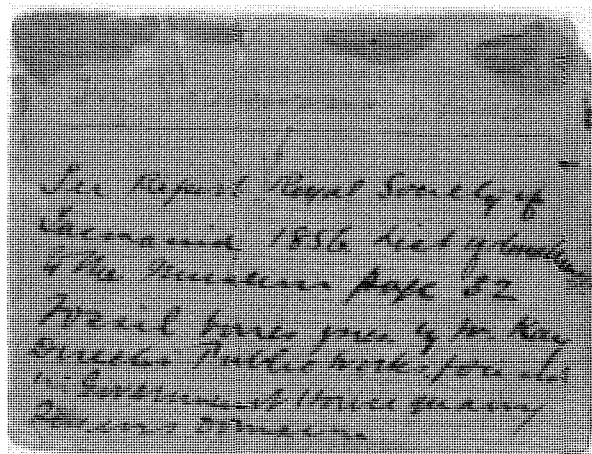 See Report Royal Society of
Tasmania 1856 List of
to the Museum page 22
Fossil bones given by Mr Kay
Director Public Works found
in Government House quarry
Domain